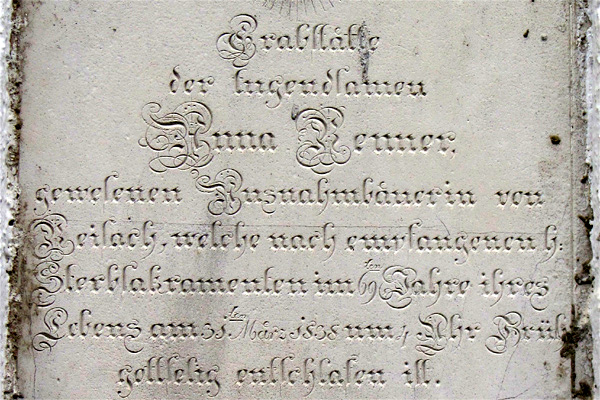 Grabstätte
der tugendsamen
Anna Renner,
gewesenen Ausnahmbäuerin von
Beilach, welche nach empfangenen h:
Sterbsakramenten im 69ten Jahre ihres
Lebens am 31ten März 1838 um 4 Uhr Früh
gottselig entschlafen ist.